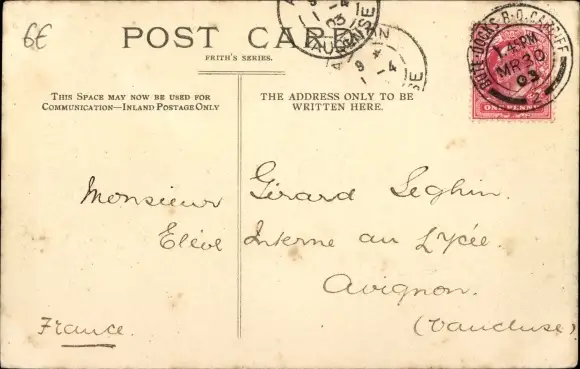 6E
POST CARD
FRITH'S SERIES.
THIS SPACE MAY NOW BE USED FOR
COMMUNICATION—INLAND POSTAGE ONLY
THE ADDRESS ONLY TO BE
WRITTEN HERE.
BUTE DOCKS B.O. CARDIFF
MR 30
03
2
ONE PENNY
Monsieur Gérard Seghin.
Elève Interne au Lycée.
Avignon.
France. (Vaucluse)